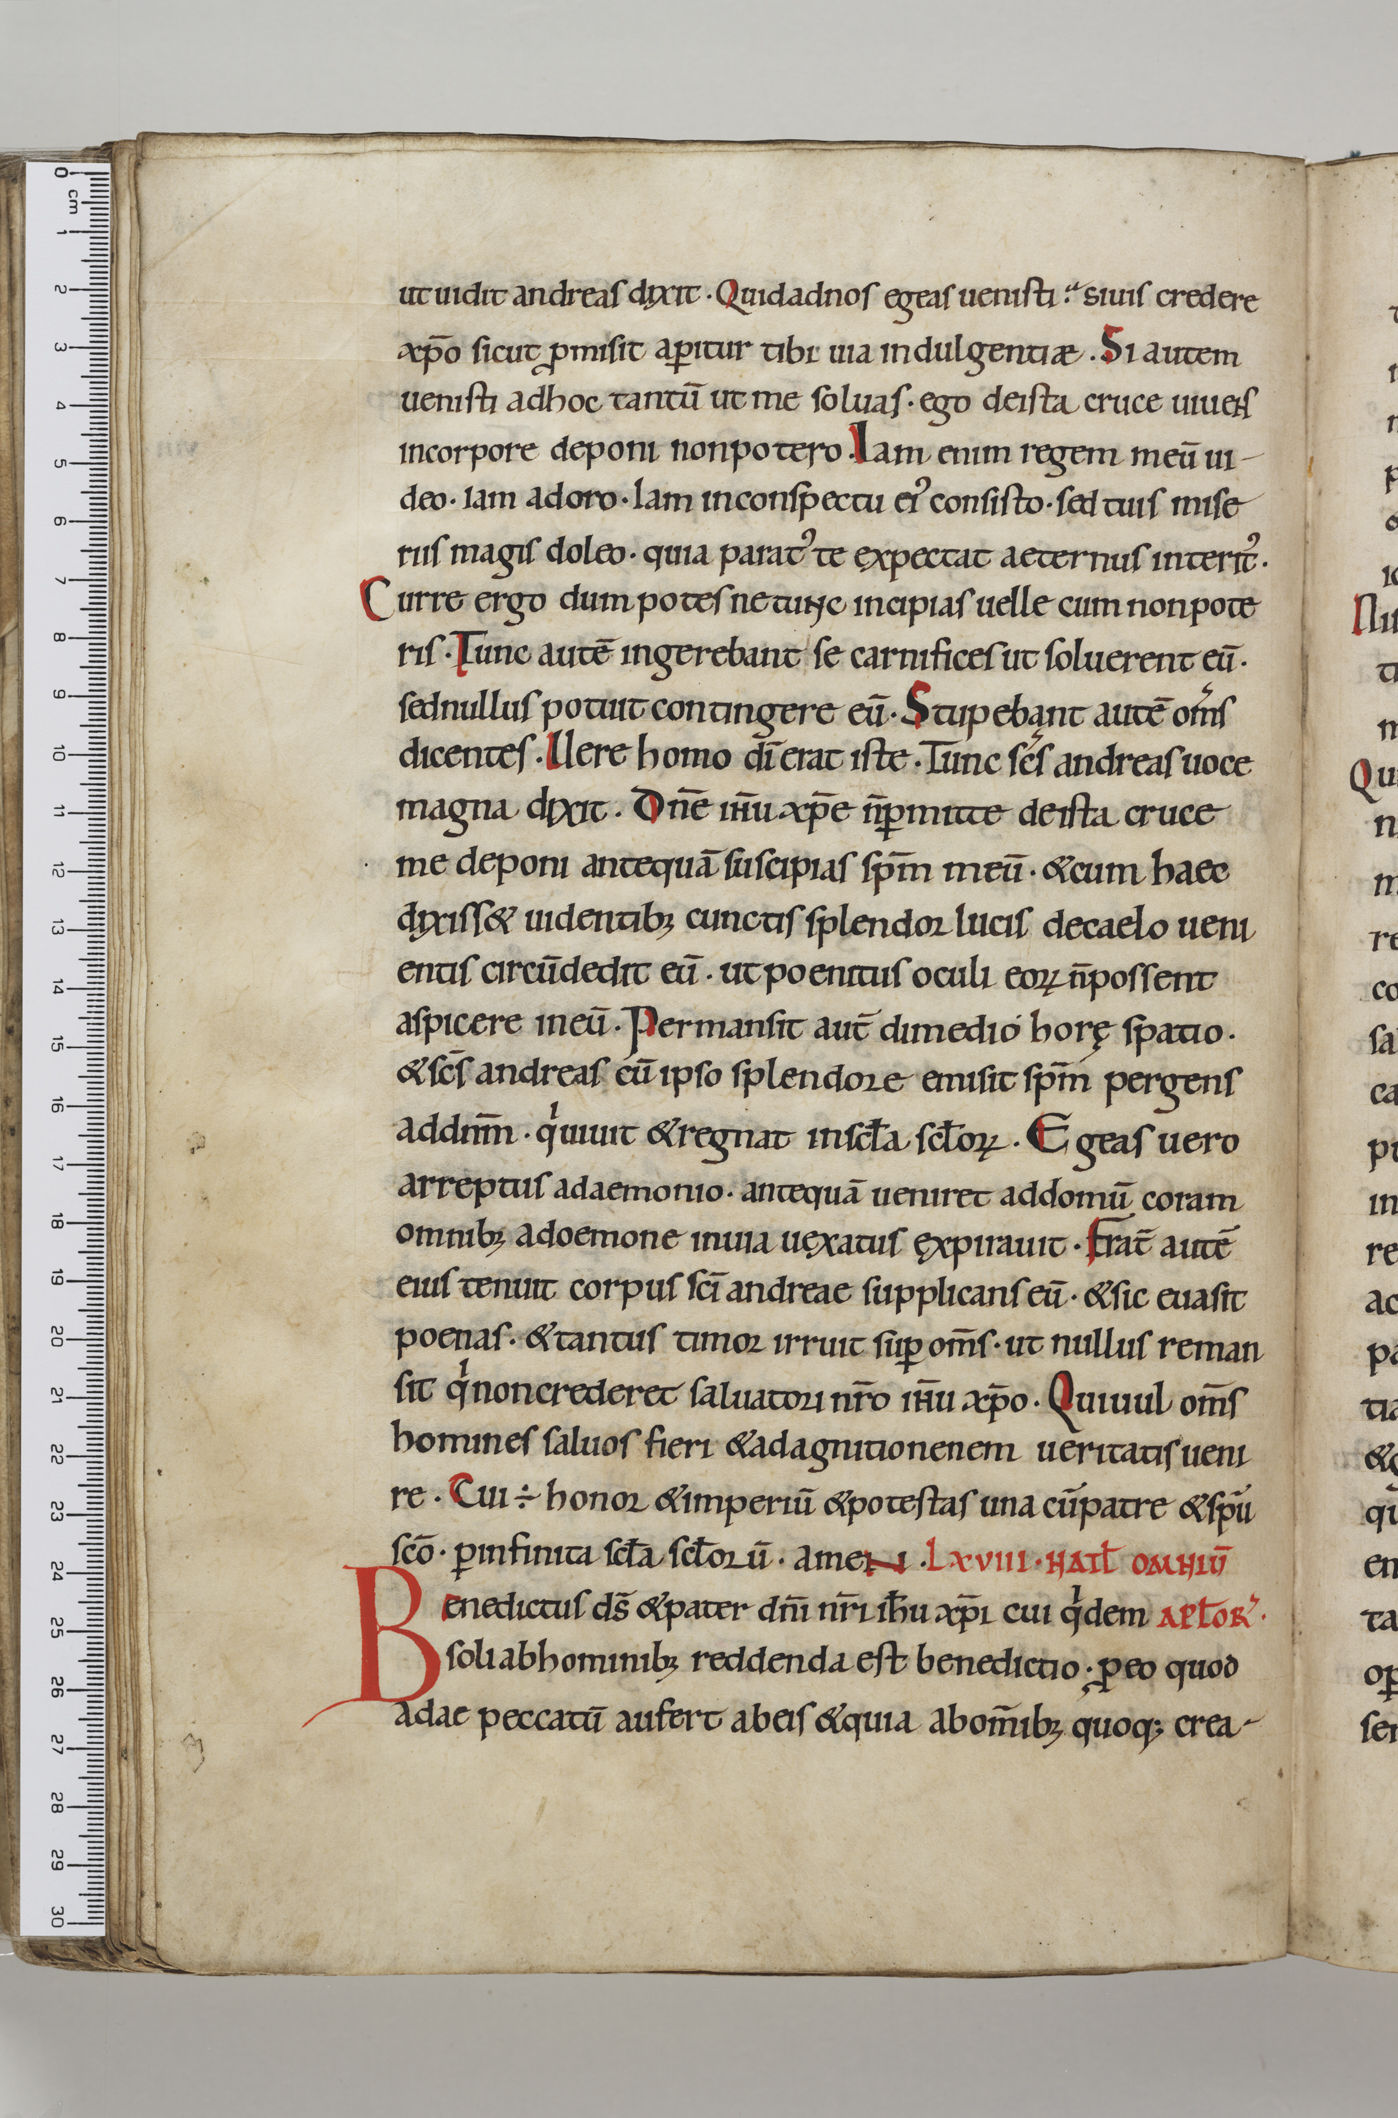 ut uidit andreas dixit · Quid ad nos egeas uenisti ? si uis credere
xp̄o sicut ꝓmisit aꝑitur tibi uia indulgentiæ . Si autem
uenisti adhoc tantū ut me soluas · ego deista cruce uiuens
incorpore deponi nonpotero . Iam enim regem meū ui-
deo · iam adoro · Iam inconspectu ei᾿ consisto · sed tuis mise
riis magis doleo · quia parat᾿ te expectat aeternus interit᾿ .
Curre ergo dum potes ne tunc incipias uelle cum non pote
ris · Tunc autē ingerebant se carnifices ut soluerent eū ·
sed nullus potuit contingere eū · Stupebant autē om̄s
dicentes · Uere homo dī erat iste · Tunc sc̄s andreas uoce
magna dixit . Dn̄e ih̄u xp̄e n̄ ꝑmitte deista cruce
me deponi antequā suscipias sp̄m meū · & cum haec
dixiss& uidentibꝫ cunctis splendor lucis decaelo ueni
entis circūdedit eū · ut poenitus oculi eoꝝ n̄ possent
aspicere ineū · Permansit aut̄ dimedio horę spatio ·
& sc̄s andreas cū ipso splendore emisit sp̄m pergens
addn̄m · qͥ uiuit & regnat insc̄ła sc̄łoꝝ . Egeas uero
arreptus adaemonio · antequā ueniret addomū coram
omnibꝫ adoemone inuia uęxatus ęxpirauit · Frat̄ autē
eius tenuit corpus sc̄i andreae supplicans eū · & sic euasit
poenas · & tantus timor irruit suꝑ om̄s · ut nullus reman
sit qͥ non crederet saluatori nr̄o ih̄u xp̄o · Qui uul om̄s
homines saluos fieri & adagnitionenem ueritatis ueni
re . Cui ÷ honor & imperiū & potestas una cū patre & sp̄u
sc̄o · ꝑ infinita sc̄ła sc̄łorū · amen . LXVIII · NATŁ OMNIŪ
Benedictus ds̄ & pater dn̄i nr̄i ih̄u xp̄i cui qͥdem APŁOR᾿ ·
soli abhominibꝫ reddenda est benedictio · ꝓ eo quod
adae peccatū aufert abeis & quia abom̄ibꝫ quoqꝫ crea-